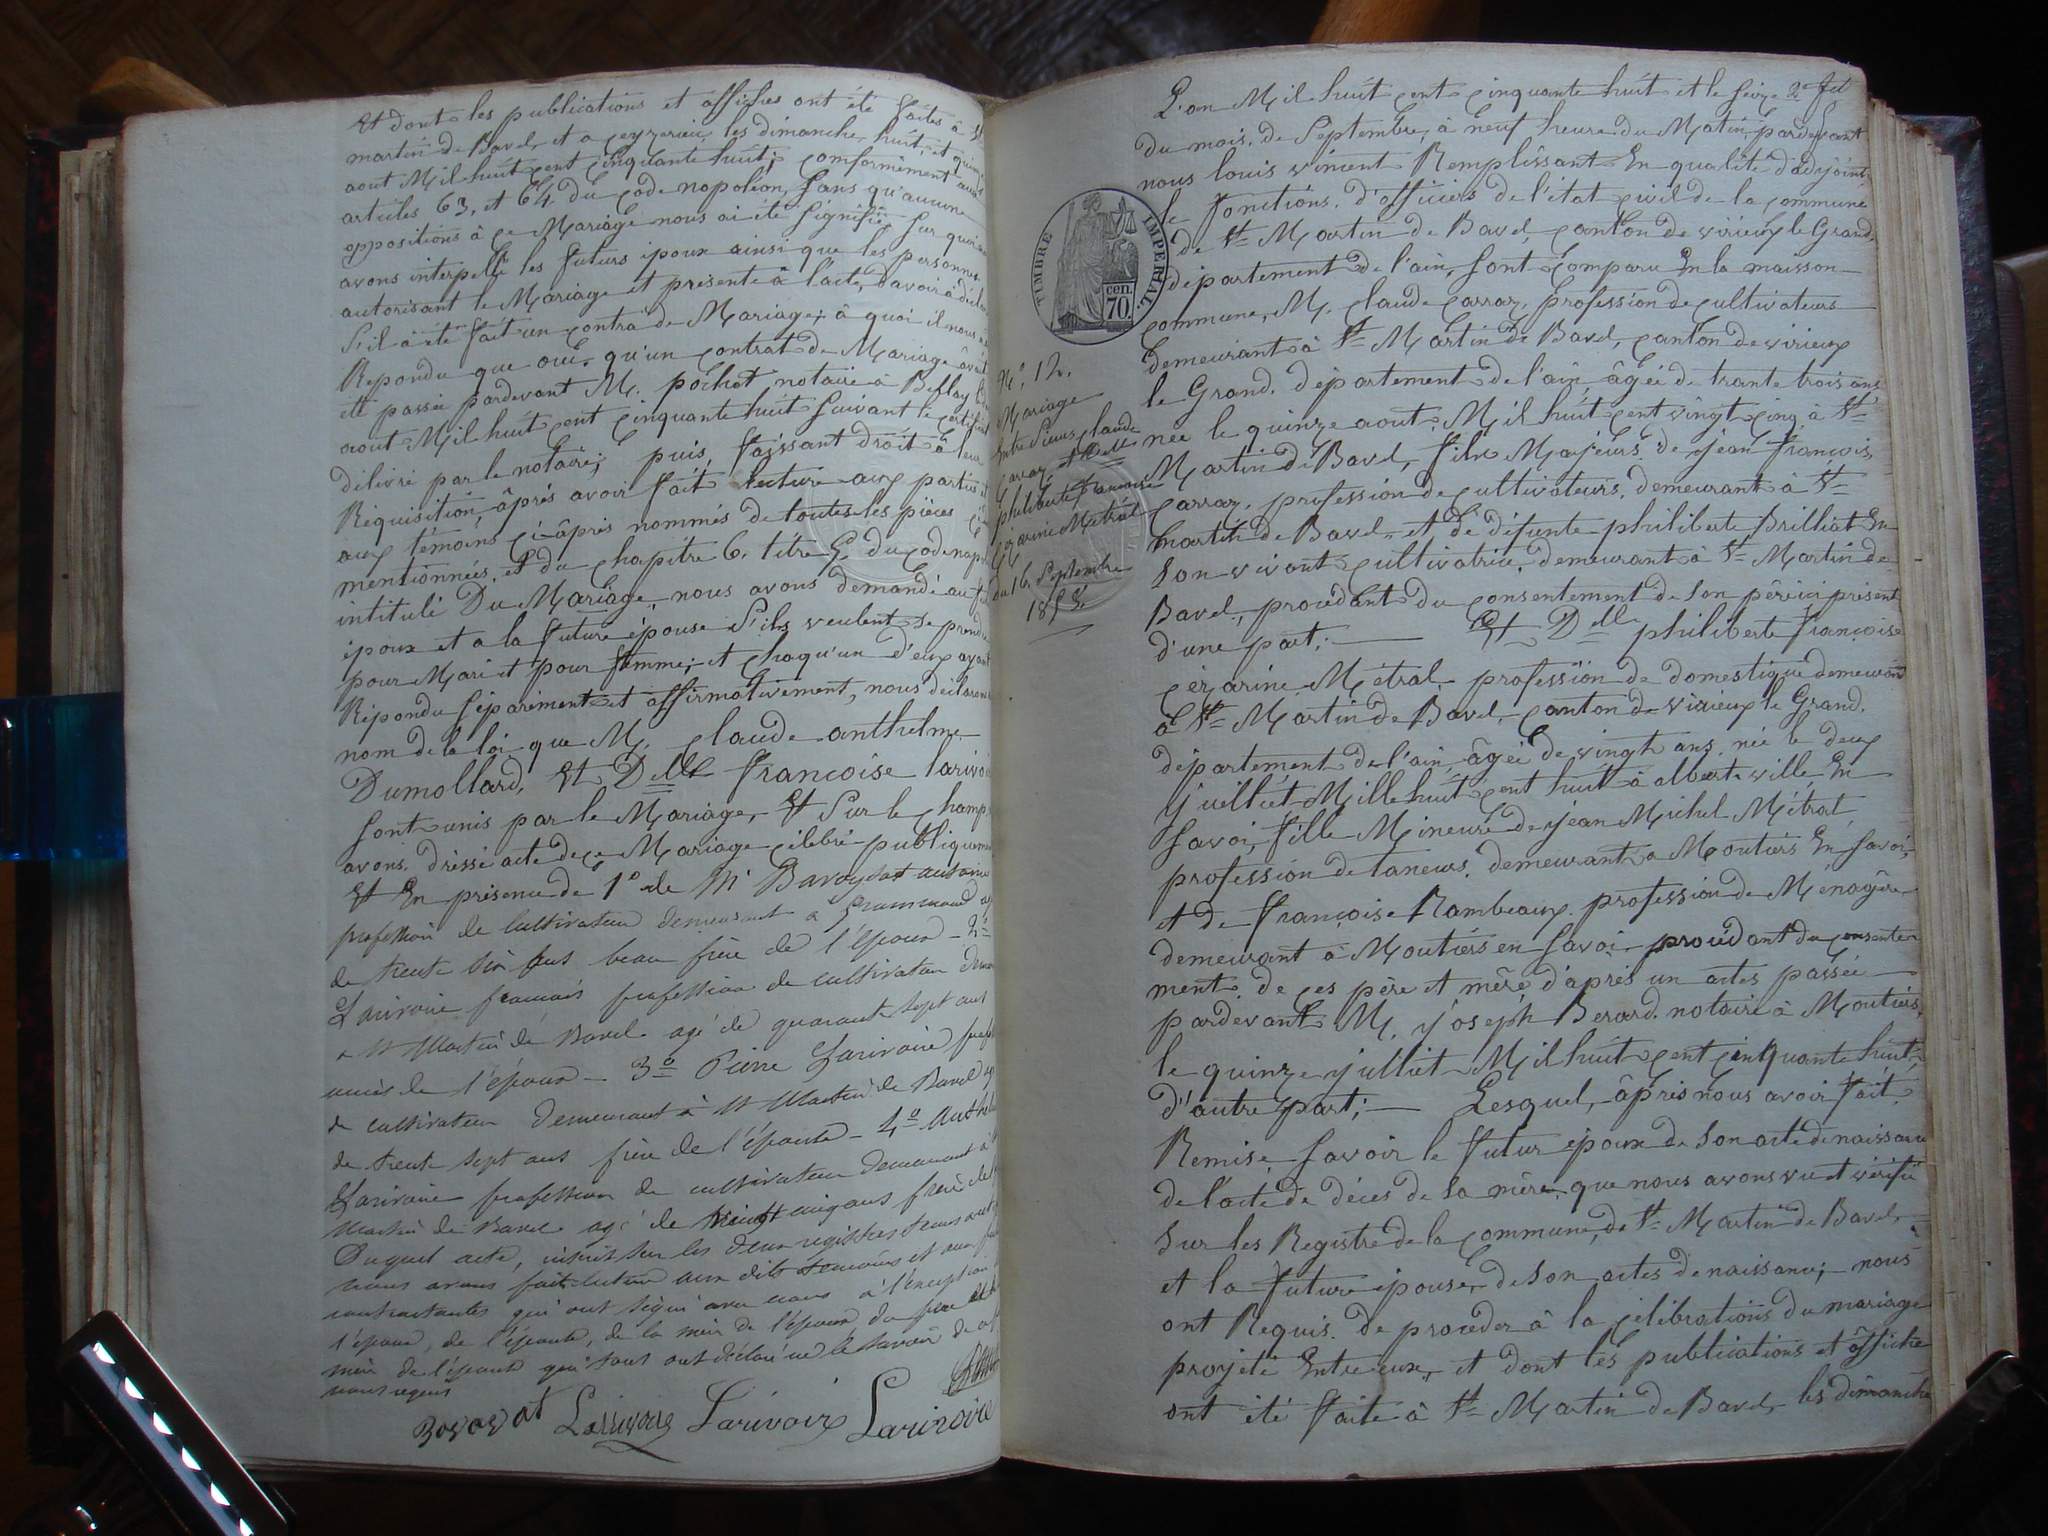 Et dont les publications et affiches ont été faites à St
martin de Bavel, et a Ceyzerieu, les dimanche, huit, et quinze
aout Mil huit cent cinquante huit; comformément aux
articles 63, et 64 du code napoléon, sans qu'aucune
oppositions à ce Mariage nous ai été signifié, sur quoi
avons interpellé les futurs époux ainsi que les personnes
autorisant le Mariage et présente à l'acte, d'avoir à
S'il a été fait un contra de Mariage; à quoi il nous
Repondu que oui, qu'un contrat de Mariage avait
été passée pardevant M. pochet notaire à Bellay
aout Mil huit cent cinquante huit suivant le certificat
délivré par le notaire; puis, faissant droit à leur
Réquisition, âprés avoir fait lecture aux parties et
aux témoins ci-âprés nommés de toutes les pièces
mentionnées, et du chapitre 6. titre 5. du code
intitulé Du Mariage, nous avons demandé au
époux et a la future épouse S'ils veulent se prendre
pour Mari et pour femme; et chaqu'un d'eux ayant
Répondu séparément et affirmativement, nous déclarons
nom de la loi que M. claude anthelme
Dumollard, Et Delle francoise
sont unis par le Mariage, Et Sur le champ
avons dréssé acte de ce Mariage célébré publiquement
Et En présence de 1° de Mr
profession de cultivateur demeurant a
de trente six ans beau frère de l'époux - 2°
Larivoire françois profession de cultivateur
a St Martin de Bavel agé de quarante sept ans
amis de l'époux - 3° Pierre Larivoire
de cultivateur demeurant à St Martin de Bavel
de trente sept ans frère de l'épouse - 4°
Larivoire profession de cultivateur demeurant à
Martin de Bavel agé de vingt cinq ans frère de
Duquel acte, inscrit sur les deux registres
nous avons fait lecture aux dits témoins et aux
contractantes qui ont signé avec nous à l'exception
l'époux, de l'épouse, de la mère de l'époux du père et
mère de l'épouse qui tous ont déclaré ne le savoir de
nous requis
Larivoire Larivoire
TIMBRE IMPERIAL
cen. 70.
N°. 12.
Mariage
Entre Sieur claude
carraz et Delle
philiberte francoise
cézarine Métral
du 16. Septembre
1858.
L'an Mil huit cent cinquante huit et le seize
du mois de Septembre, à neuf heure du Matin, pardevant
nous louis vincent Remplissant En qualité d'adjoint
le fonctions d'officiers de l'état civil de la commune
de St Martin de Bavel, canton de virieux le Grand,
département de l'ain, sont comparu En la maisson
commune, M. claude carraz, profession de cultivateurs
demeurant à St Martin de Bavel, canton de virieux
le Grand, département de l'ain, âgée de trante trois ans,
née le quinze aout Mil huit cent vingt cinq à St
Martin de Bavel, fils Majeurs de jean françois
carraz, profession de cultivateurs, demeurant à St
martin de Bavel, et de défunte philiberte Brilliat En
son vivant cultivatrice, demeurant à St Martin de
Bavel, procédant du consentement de son père ici présent
d'une part; Et Delle philiberte françoise
cézarine Métral, profession de domestique demeurant
à St Martin de Bavel, canton de virieux le Grand,
département de l'ain, âgée de vingt ans, née le deux
juilliét Mille huit cent huit à albertville En
Savoi, fille Mineure de jean Michel Métral,
profession de taneurs, demeurant a Moutiers En Savoi,
et de françoise Rambeaux, profession de Ménagère
demeurant à Moutiers en Savoi, procédant du consente
ment de ces père et mère d'après un actes passée
pardevant M. joseph Berard, notaire à Moutiers,
le quinze julliet Mil huit cent cinquante huit,
d'autre part; Lesquel, âprés nous avoir fait
Remise, Savoir le futur époux de son acte de naissance
de l'acte de décès de sa mère, que nous avons vu et vérifié
Sur les Registre de la commune de St Martin de Bavel,
et la future épouse, de son actes de naissance; nous
ont Requis de procéder à la célébrations du mariage
projeté Entre eux, et dont les publications et âffiche
ont été faite à St Martin de Bavel, les dimanche